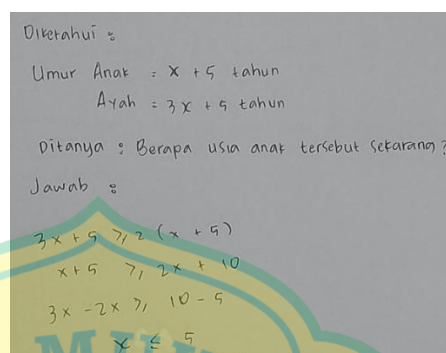 Diketahui :
Umur Anak = x + 5 tahun
Ayah = 3x + 5 tahun
Ditanya : Berapa usia anak tersebut sekarang ?
Jawab :
3x + 5 ≥ 2 (x + 5)
x + 5 ≥ 2x + 10
3x - 2x ≥ 10 - 5
x ≤ 5